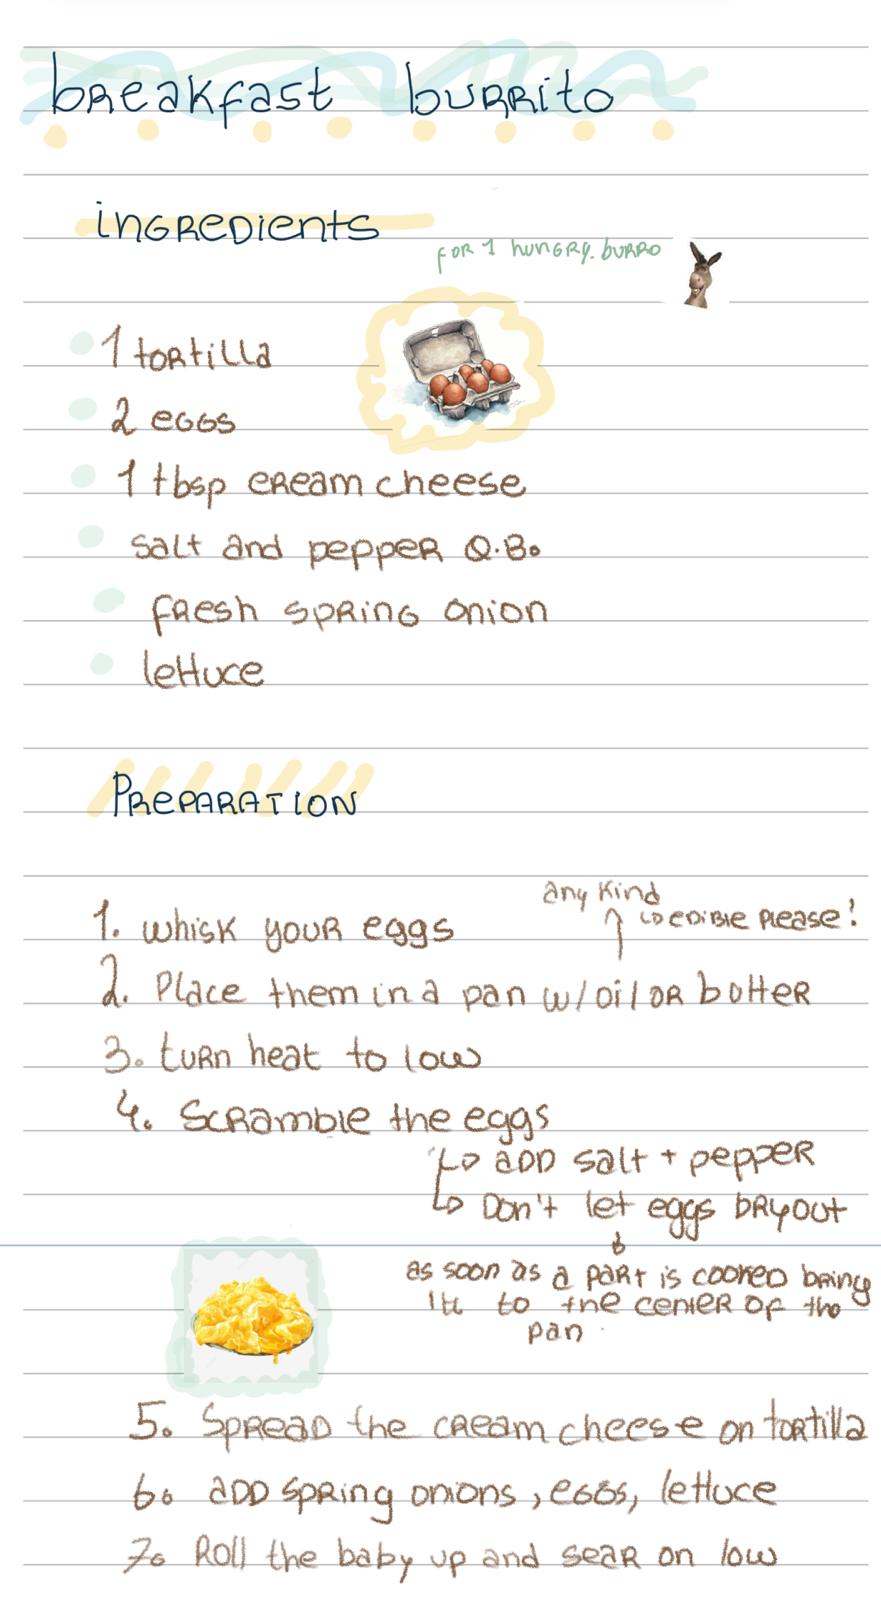 breakfast burrito
ingredients
for 1 hungry. burro
1 tortilla
2 eggs
1 tbsp cream cheese
salt and pepper Q.B.
fresh spring onion
lettuce
Preparation
any kind
↳ edible please!
1. whisk your eggs
2. Place them in a pan w/ oil or butter
3. turn heat to low
4. Scramble the eggs
↳ add salt + pepper
↳ Don't let eggs dry out
as soon as a part is cooked bring
it to the center of the
pan
5. Spread the cream cheese on tortilla
6. add spring onions, eggs, lettuce
7. Roll the baby up and sear on low